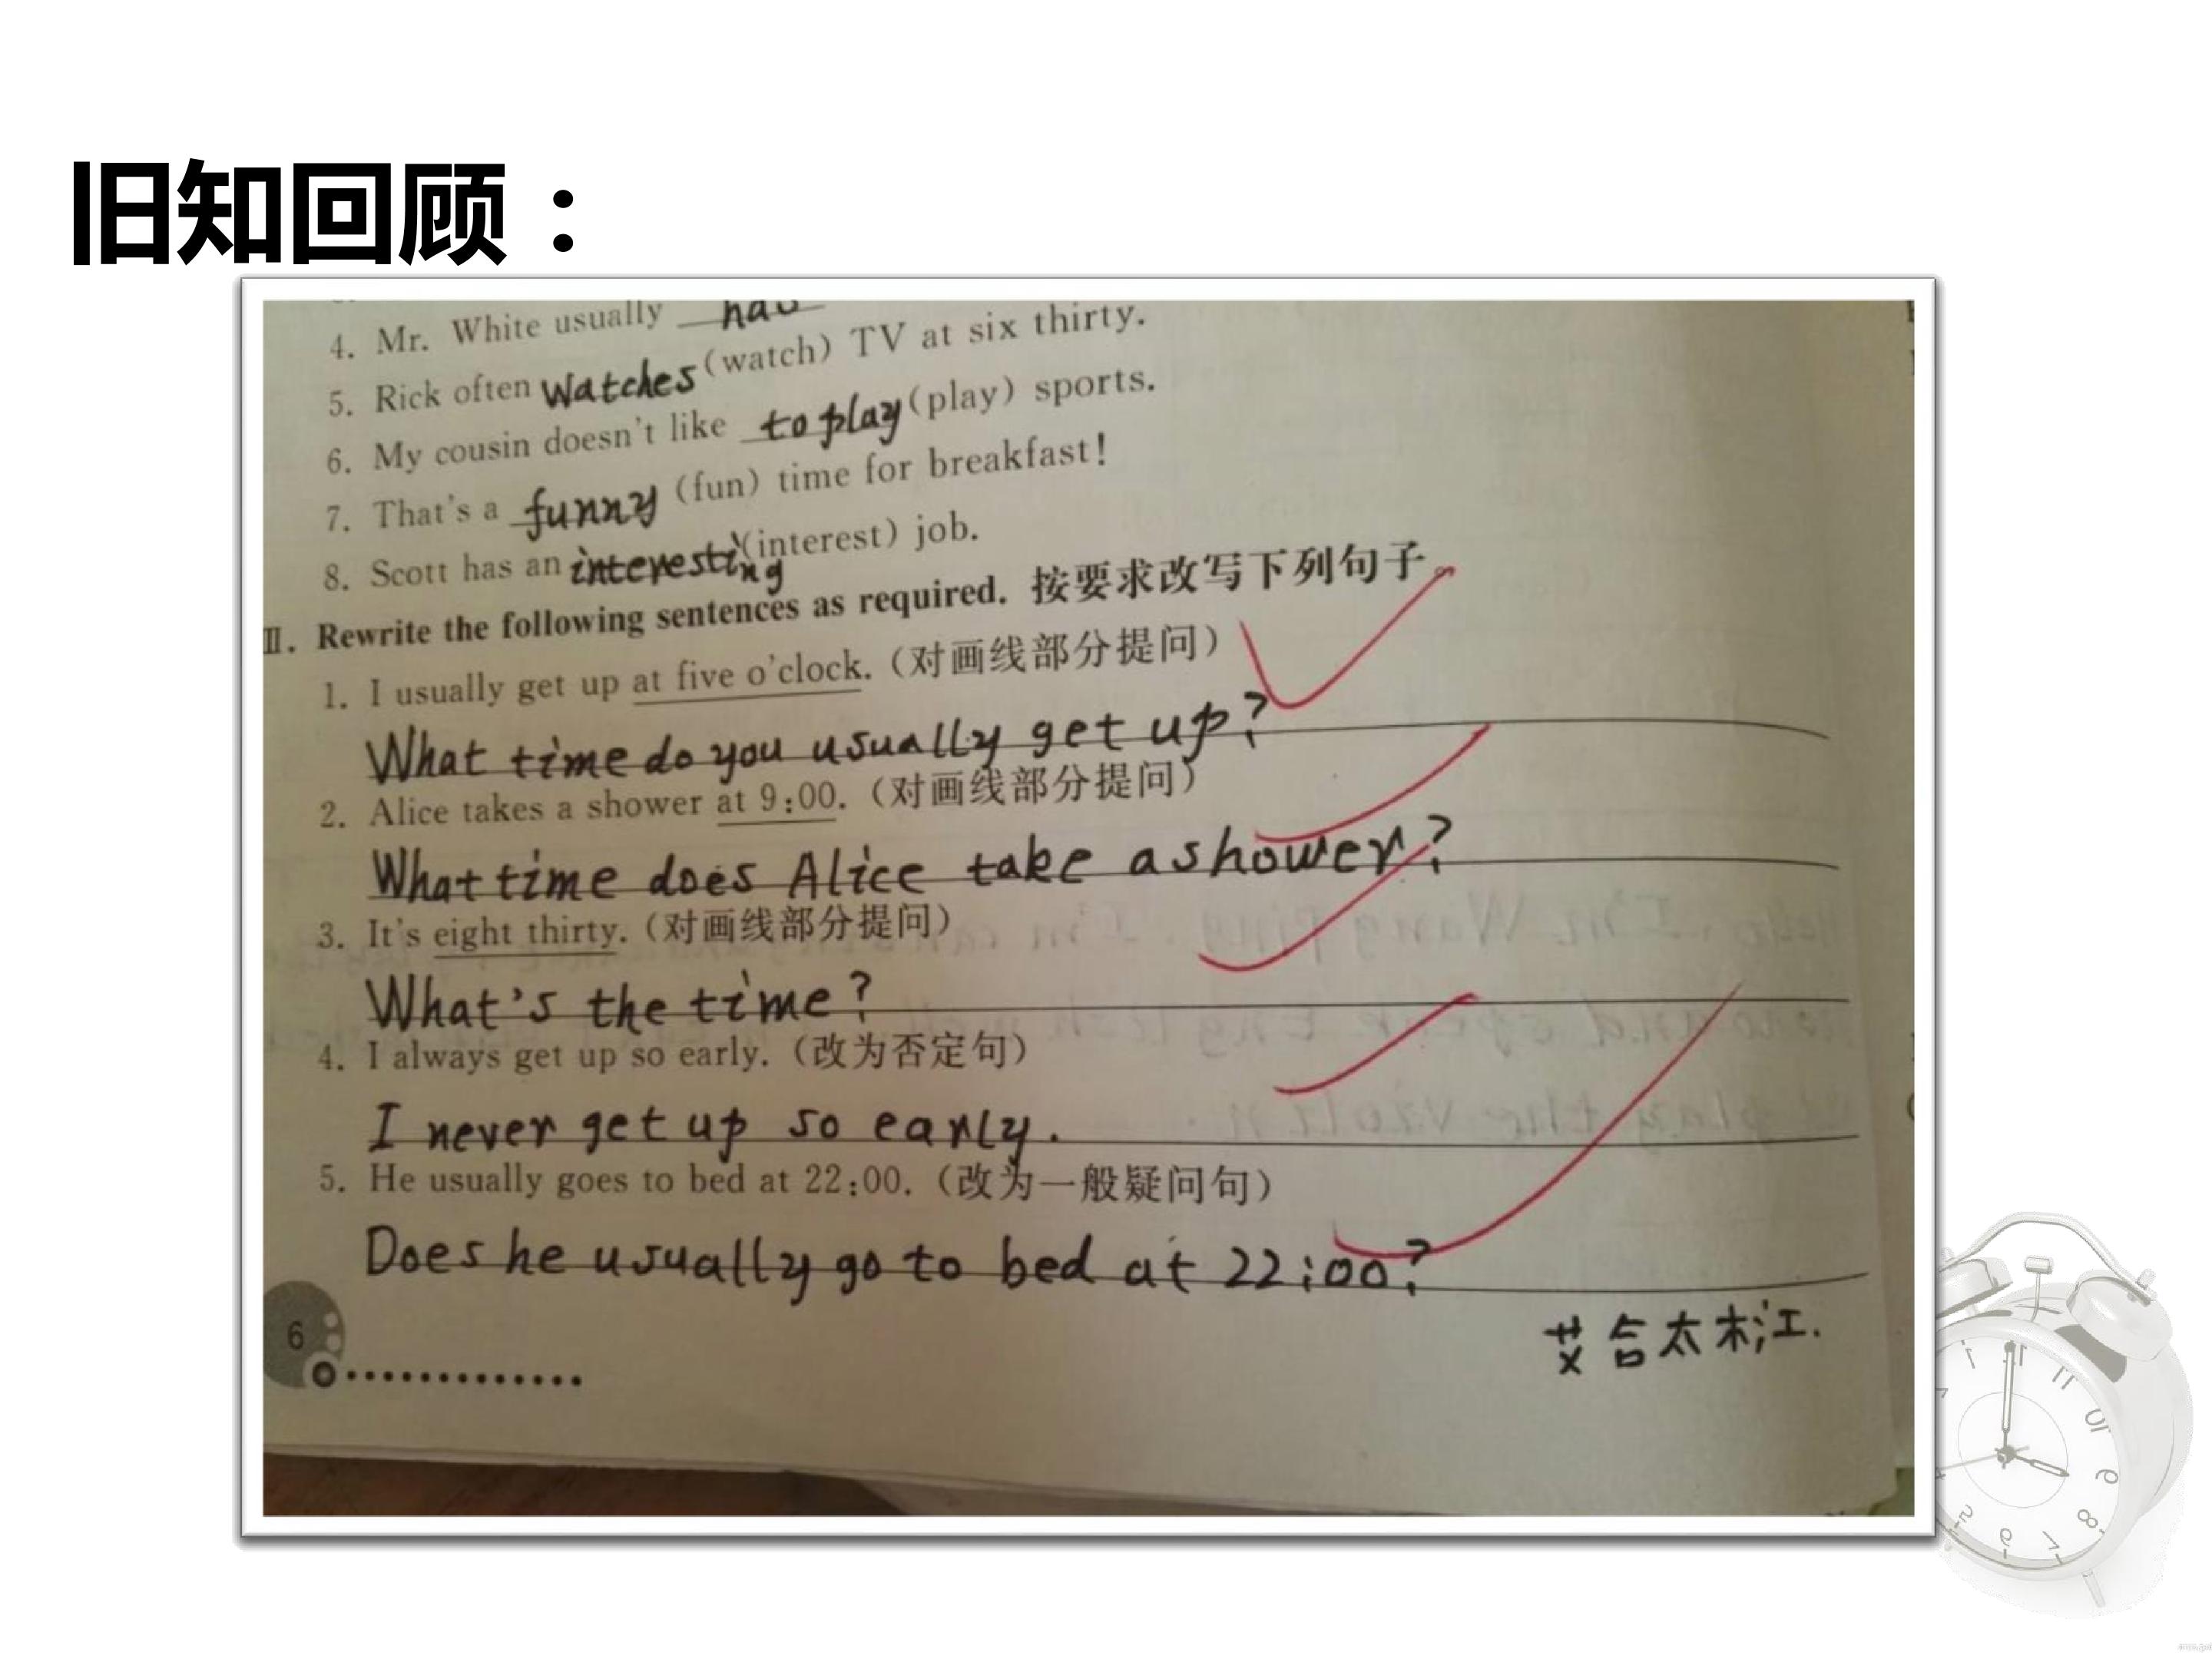 旧知回顾：
4. Mr. White usually
5. Rick often watches (watch) TV at six thirty.
6. My cousin doesn't like to play (play) sports.
7. That's a funny (fun) time for breakfast!
8. Scott has an interesting (interest) job.
Ⅲ. Rewrite the following sentences as required. 按要求改写下列句子。
1. I usually get up at five o'clock. (对画线部分提问)
What time do you usually get up?
2. Alice takes a shower at 9:00. (对画线部分提问)
What time does Alice take a shower?
3. It's eight thirty. (对画线部分提问)
What's the time?
4. I always get up so early. (改为否定句)
I never get up so early.
5. He usually goes to bed at 22:00. (改为一般疑问句)
Does he usually go to bed at 22:00?
艾合太木江.
6